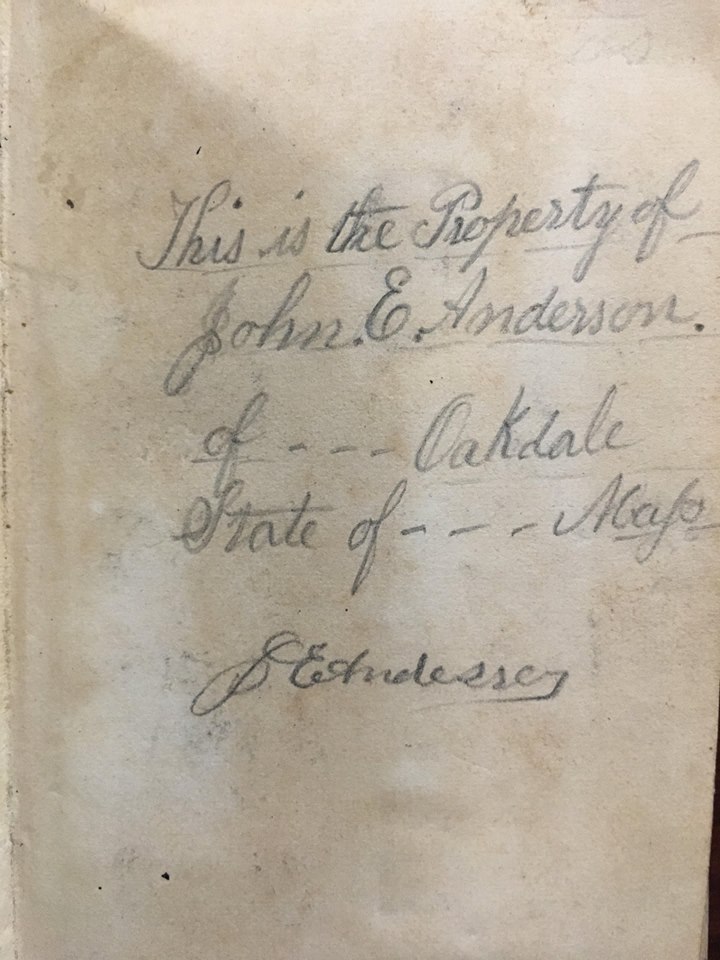 This is the Property of
John. E. Anderson.
of - - - Oakdale
State of - - - Mass
J E Anderson